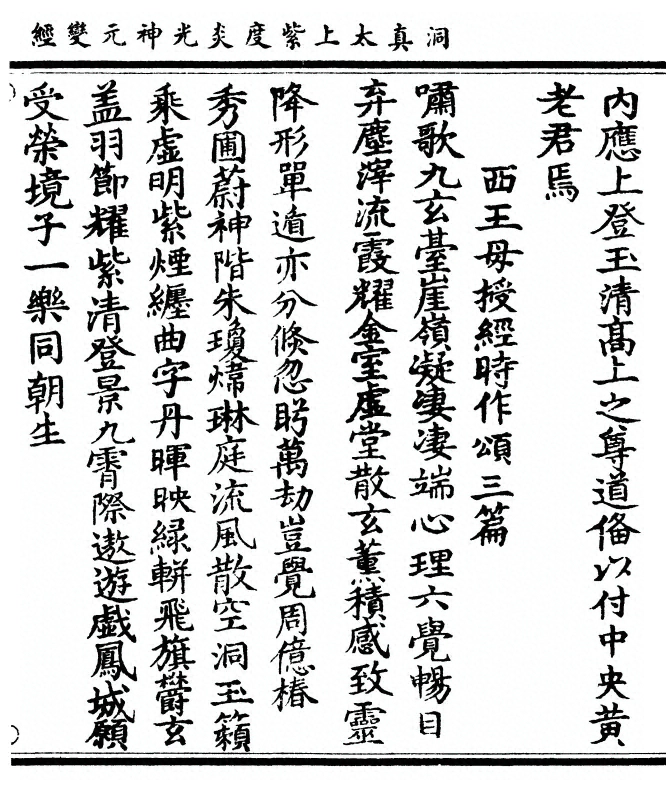 洞真太上紫度炎光神元變經
內應上登玉清高上之尊道俻以付中央黃
老君焉
西王母授經時作頌三篇
嘯歌九玄臺崖嶺凝淒淒端心理六覺暢目
弃塵滓流霞耀金室虛堂散玄薰積感致靈
降形單遁亦分倏忽眄萬劫豈覺周億椿
秀圃蔚神階朱瓊煒琳庭流風散空洞玉籟
乘虛明紫煙纏曲字丹暉映綠軿飛旗鬱玄
盖羽節耀紫清登景九霄際遨遊戲鳳城願
受榮境子一樂同朝生